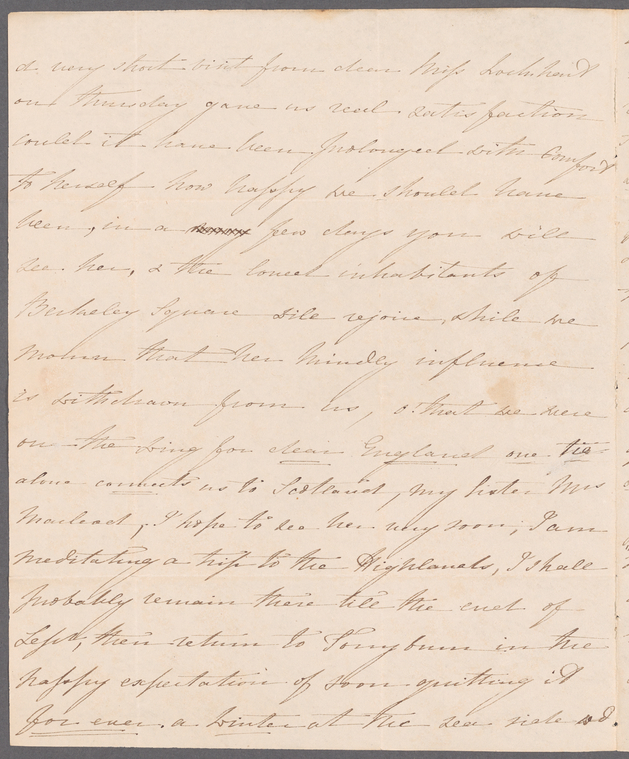 a very short visit from dear Miss Lockhart
on Thursday gave us real satisfaction
could it have been prolonged with comfort
to herself how happy we should have
been, in a few days you will
see her, & the loved inhabitants of
Berkeley Square will rejoice, while we
mourn that her kindly influence
is withdrawn from us, o! that we were
on the wing for dear England one tie
alone connects us to Scotland, my sister Mrs
Macleod, I hope to see her very soon, I am
meditating a trip to the Highlands, I shall
probably remain there till the end of
Sept, then return to Torryburn in the
happy expectation of soon quitting it
for ever. a winter at the sea side wd